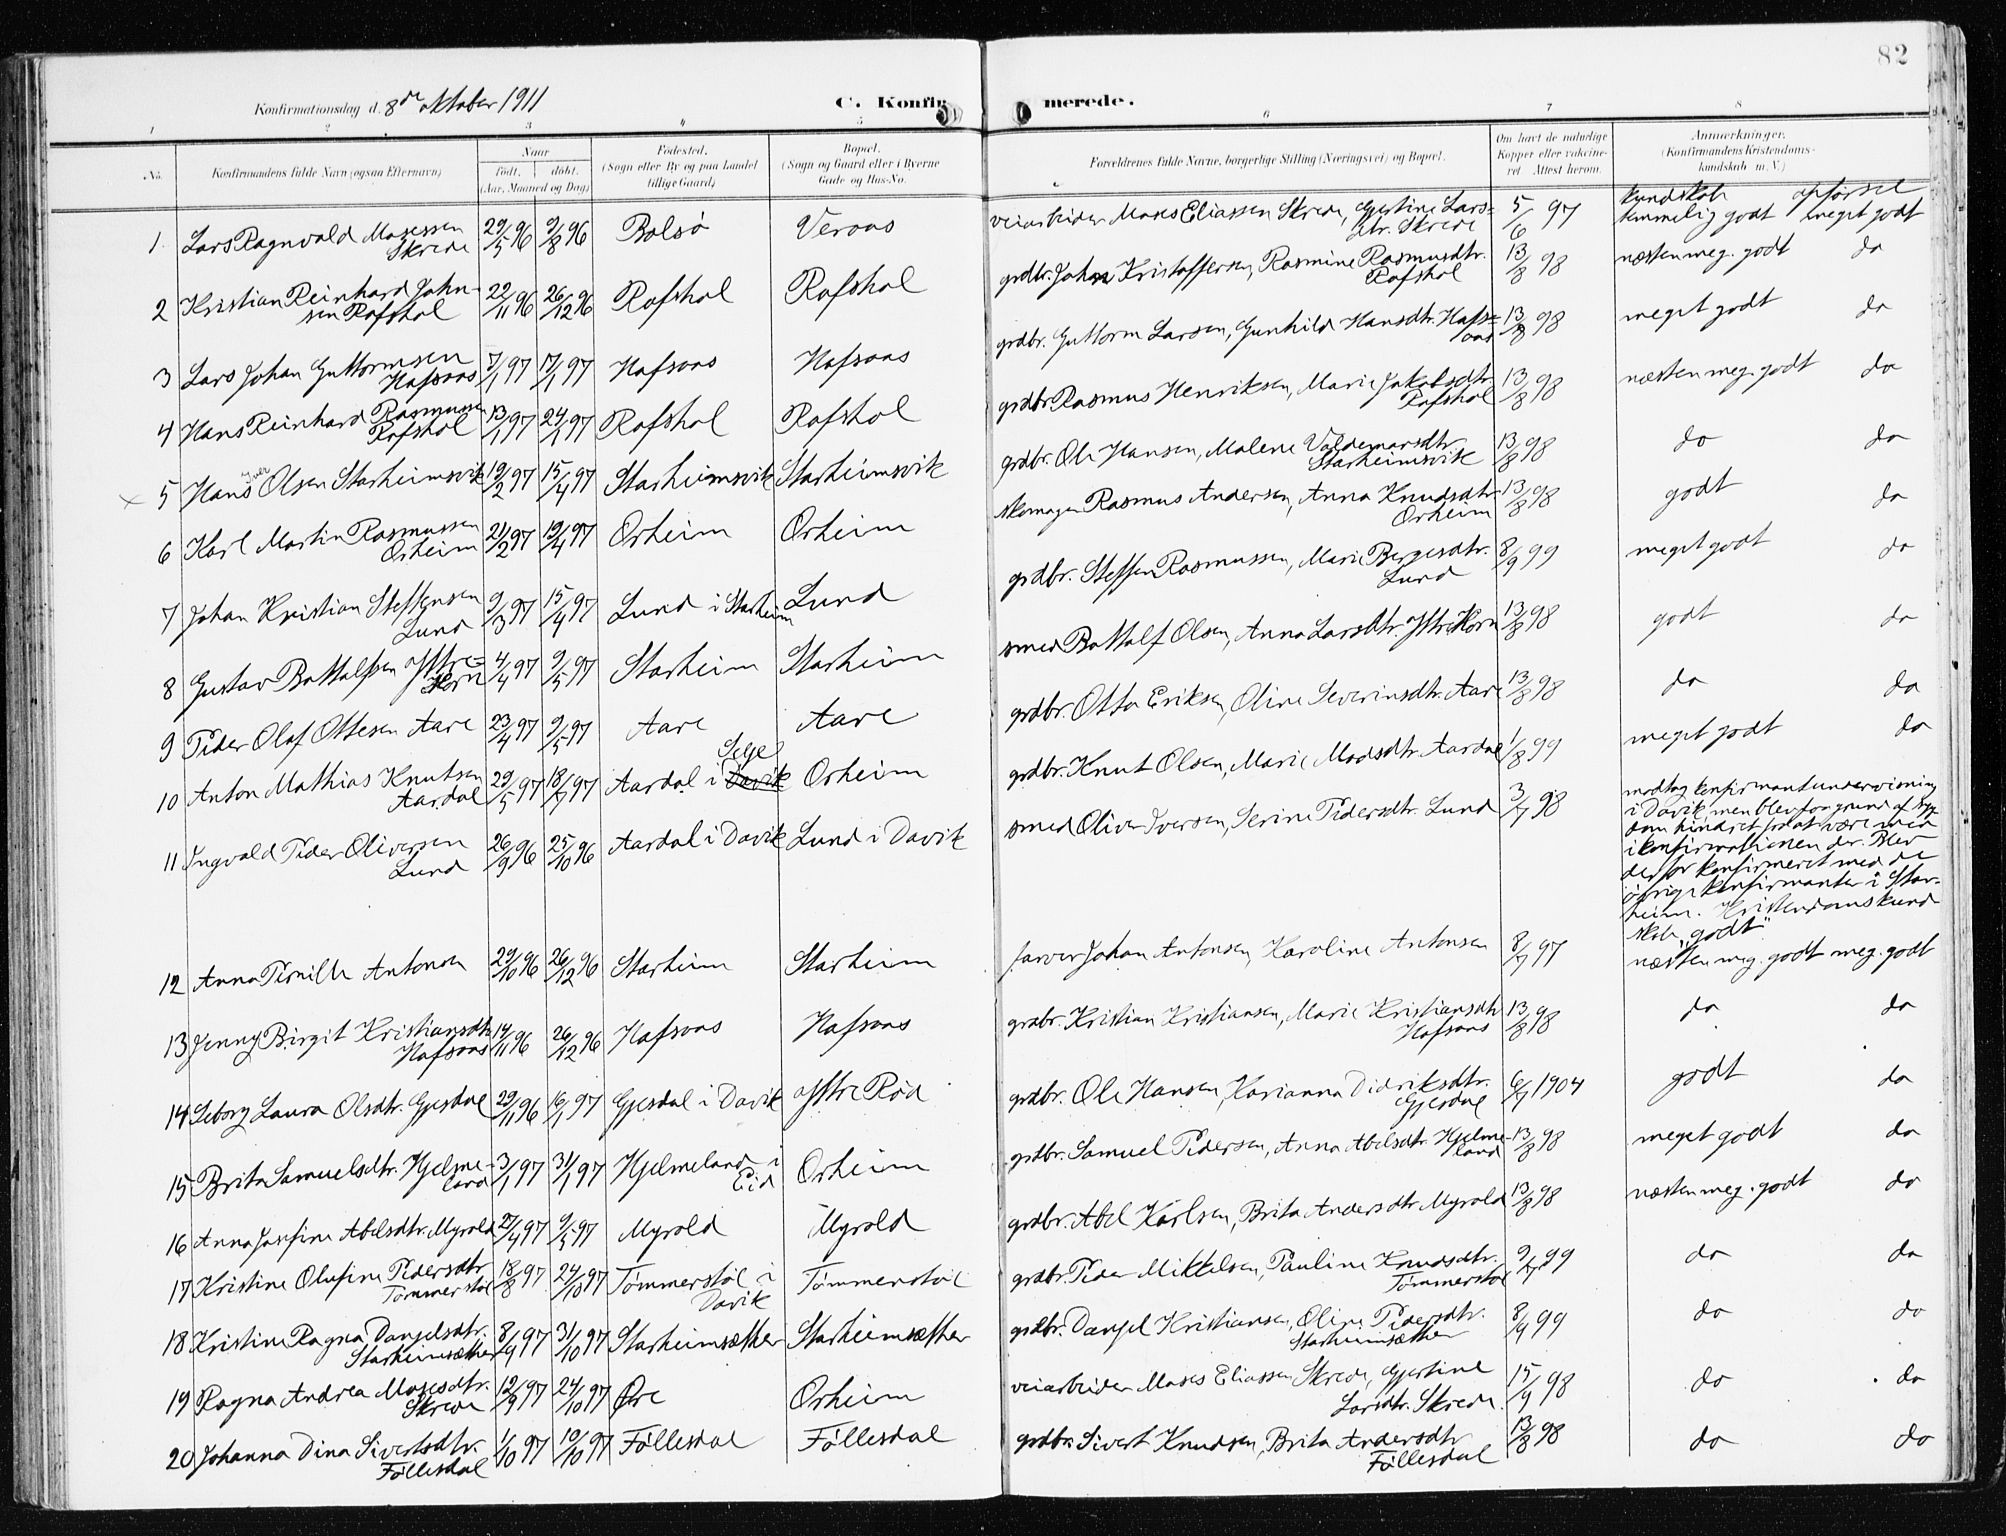 82
Konfirmationsdag d. 8de oktober 1911 C. Konfirmerede.
1 2 3 4 5 6 7 8
No. Konfirmandens fulde Navn (ogsaa Efternavn) Naar født, døbt. (Aar, Maaned og Dag) Fødested. (Sogn eller By og paa Landet tillige Gaard) Bopæl. (Sogn og Gaard eller i Byerne Gade og Hus-No. Forældrenes fulde Navne, borgerlige Stilling (Næringsvei) og Bopæl. Om havt de naturlige Kopper eller vakcineret. Attest herom. Anmærkninger. (Konfirmandens Kristendomskundskab m. V.)
kundskab opførsel
1 Lars Ragnvald Mosessen Skrede 29/5 96 9/8 96 Bolsö Veraas veiarbeider Moses Eliassen Skrede, Gjertine Larsdtr. Skrede 5/6 97 temmelig godt meget godt
2 Kristian Reinhard Johnsen Rafshol 22/11 96 26/12 96 Rafshol Rafshol grdbr. John Kristoffersen, Rasmine Rasmusdtr. Rafshol 13/8 98 næsten meg. godt do
3 Lars Johan Guttormsen Hafsaas 7/1 97 17/1 97 Hafsaas Hafsaas grdbr. Guttorm Larsen, Gunhild Hansdtr. Hafsaas 13/8 98 meget godt do
4 Hans Reinhard Rasmussen Rafshol 13/1 97 24/1 97 Rafshol Rafshol grdbr. Rasmus Henriksen, Marie Jakobsdtr. Rafshol 13/8 98 næsten meg. godt do
x 5 Hans Iver Olsen Starheimsvik 19/2 97 15/4 97 Starheimsvik Starheimsvik grdbr. Ole Hansen, Malene Valdemarsdtr. Starheimsvik 13/8 98 do do
6 Karl Martin Rasmussen Orheim 21/2 97 19/4 97 Orheim Orheim skomager Rasmus Andersen, Anna Knudsdtr. Orheim 13/8 98 godt do
7 Johan Kristian Steffensen Lund 9/3 97 15/4 97 Lund i Starheim Lund grdbr. Steffen Rasmussen, Marie Bergesdtr. Lund 8/9 99 meget godt do
8 Gustav Battalfsen Yttre-Horn 4/4 97 9/5 97 Starheim Starheim smed Battalf Olsen, Anna Larsdtr. Yttre Horn 13/8 98 godt do
9 Peder Olaf Ottesen Aare 23/4 97 9/5 97 Aare Aare grdbr. Otto Eriksen, Oline Severinsdtr. Aare 13/8 98 do do
10 Anton Mathias Knutsen Aardal 29/5 97 18/7 97 Aardal i Davik Selje Orheim grdbr. Knut Olsen, Marie Madsdtr. Aardal 1/8 99 meget godt do
11 Ingvald Peder Oliversen Lund 26/9 96 25/10 96 Aardal i Davik Lund i Davik smed Oliver Iversen, Serine Pedersdtr. Lund 3/7 98 modtog konfirmantundervisning
i Davik, men blev paa grund af sygdom hindret fra at være med
i konfirmationen der. Blev
derfor konfirmeret med de
övrige konfirmanter i Starheim. Kristendomskundskab "godt"
12 Anna Pernille Antonsen 29/10 96 26/12 96 Starheim Starheim farver Johan Antonsen, Karoline Antonsen 8/7 97 næsten meg. godt meg. godt
13 Jenny Birgit Kristiansdtr. Hafsaas 14/11 96 26/12 96 Hafsaas Hafsaas grdbr. Kristian Kristiansen, Marie Kristiansdtr. Hafsaas 13/8 98 do do
14 Seborg Laura Olsdtr. Gjesdal 29/11 96 16/1 97 Gjesdal i Davik Yttre Rød grdbr. Ole Hansen, Karianna Didriksdtr. Gjesdal 6/7 1904 godt do
15 Brita Samuelsdtr. Hjelmeland 3/1 97 31/1 97 Hjelmeland i Eid Orheim grdbr. Samuel Pedersen, Anna Abelsdtr. Hjelmeland 13/8 98 meget godt do
16 Anna Josefine Abelsdtr. Myrold 27/4 97 9/5 97 Myrold Myrold grdbr. Abel Karlsen, Brita Andersdtr. Myrold 13/8 98 næsten meg. godt do
17 Kristine Olufine Pedersdtr. Tømmerstøl 18/8 97 24/10 97 Tømmerstøl i Davik Tømmerstøl grdbr. Peder Mikkelsen, Pauline Knudsdtr. Tømmerstøl 9/7 99 do do
18 Kristine Ragna Danjelsdtr. Starheimsæther 8/9 97 31/10 97 Starheimsæther Starheimsæther grdbr. Danjel Kristiansen, Oline Pedersdtr. Starheimsæther 8/9 99 do do
19 Ragna Andrea Mosesdtr. Skrede 12/9 97 24/10 97 Øre Orheim veiarbeider Moses Eliassen Skrede, Gjertine Larsdtr. Skrede 15/9 98 do do
20 Johanna Dina Sivertsdtr. Føllesdal 1/10 97 10/10 97 Føllesdal Føllesdal grdbr. Sivert Knudsen, Brita Andersdtr. Føllesdal 13/8 98 do do